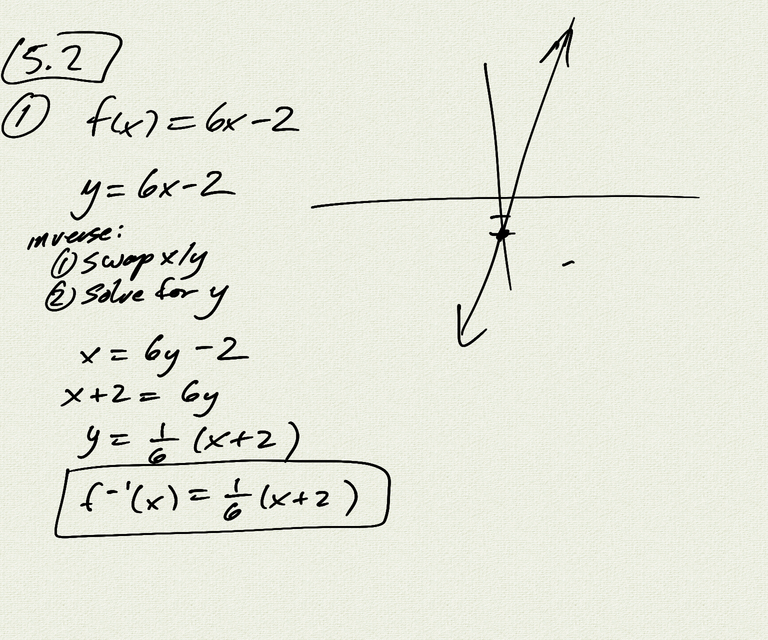 5.2
① f(x) = 6x-2
y = 6x-2
inverse:
① swap x/y
② solve for y
x = 6y -2
x+2 = 6y
y = 1/6 (x+2)
f⁻¹(x) = 1/6 (x+2)